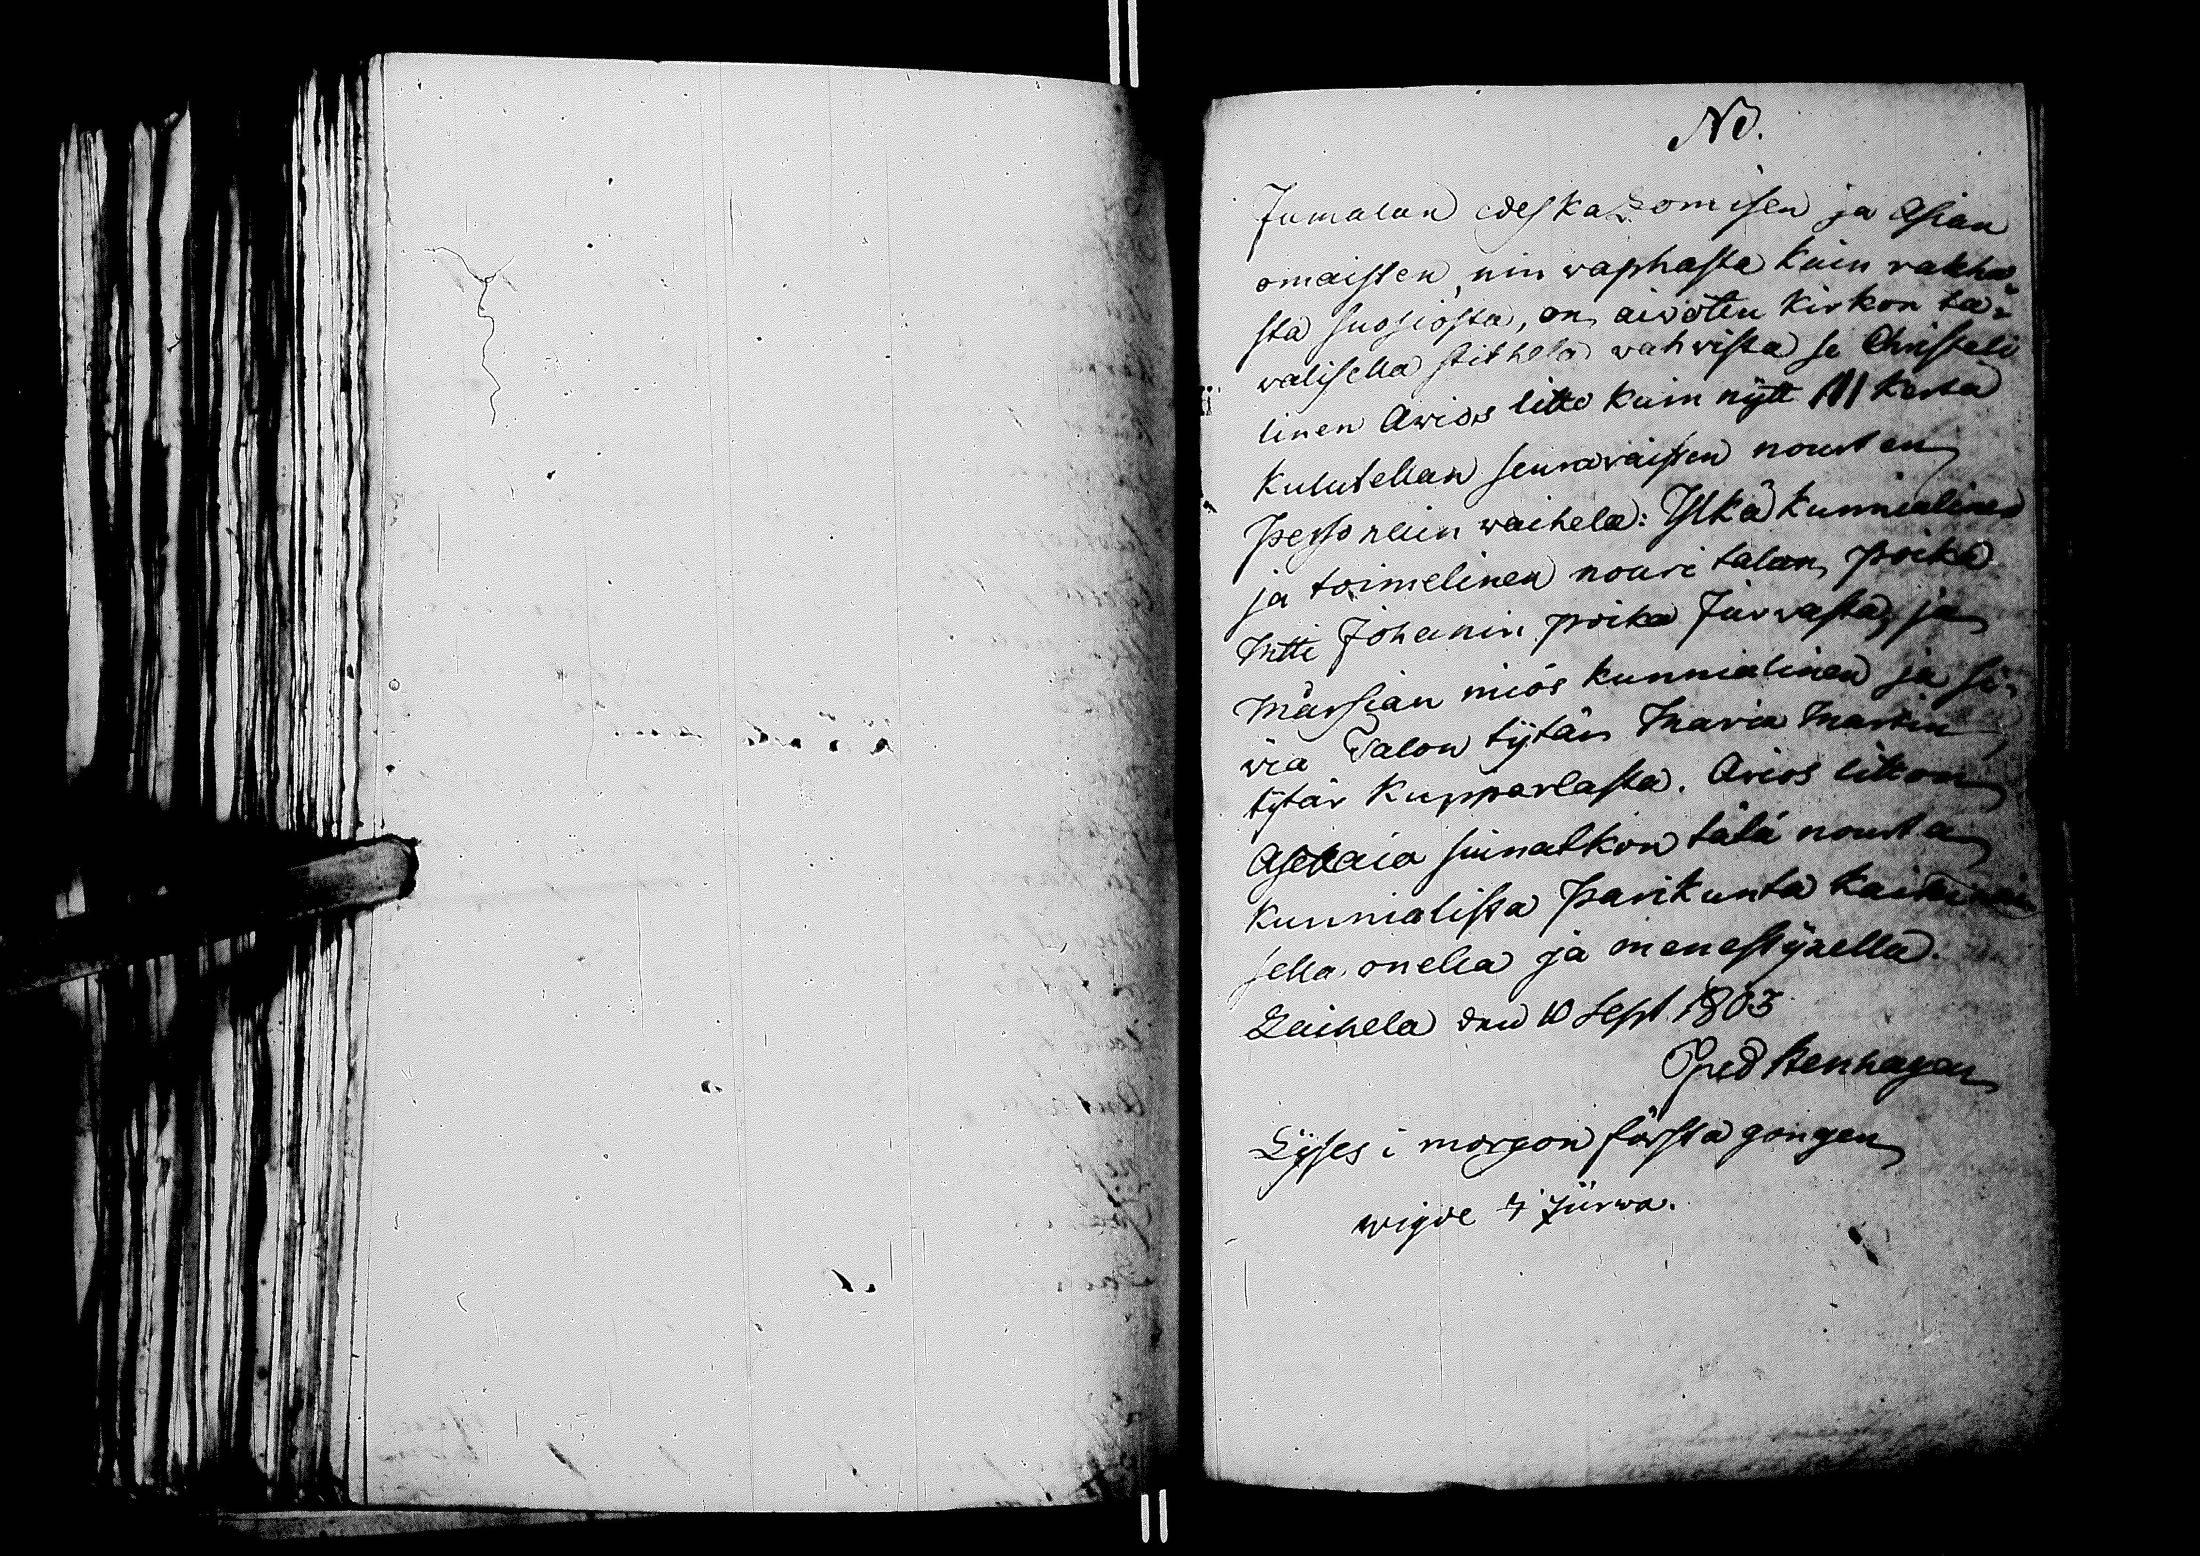 No.
Jumalan edeskazomisen ja Asian
omaisten, nin waphasta kuin rakha-
sta suosiosta, on aiwottu kirkon ta-
walisella stithela wahwista se Christeli
linen Awios litto kuin nytt III kerta
kulutellan seurawaisten nourten
personain waihela: Ylkä kunnialinen
ja toimelinen nouri talon poika
Matti Johanin poika Jurwasta, ja
Märsian niös kunnialinen ja si-
wiä Talon tytär Maria Markin
tytär Kupparlasta. Avios litton
Asettaia siunatkon tätä nourta
kunnialista Parikunta kaikinais
sella onella ja menestyxella.
Laihela den 10 Sept. 1803
Lyses i morgon första gongen
wigde i Jurwa.